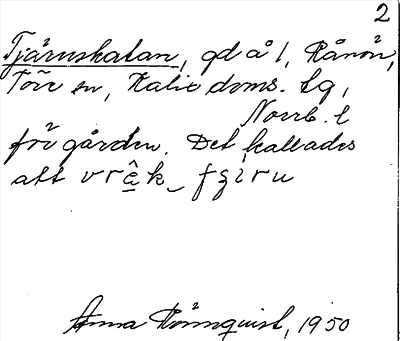 2
Tjäruskatan, gd å l, Rånön,
Töre sn, Kalix doms. tg,
Norrb. l
för gården. Det kallades
att vrâk_ fʒiru
Anna Rönnquist, 1950